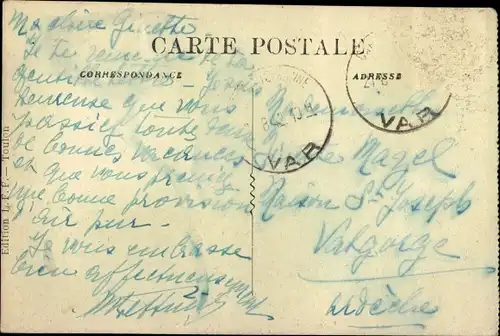 CARTE POSTALE
CORRESPONDANCE
ADRESSE
Ma chère Ginette
Je te remercie de ta
gentille
heureuse que vous
passiez toute
de bonnes vacances
et que vous preniez
une bonne provision
d'air pur -
Je vous embrasse
bien affectueusement
Mademoiselle
Ginette Mazel
Maison St Joseph
Valgorge
Ardèche
VAR
VAR
Edition L. F. P. - Toulon